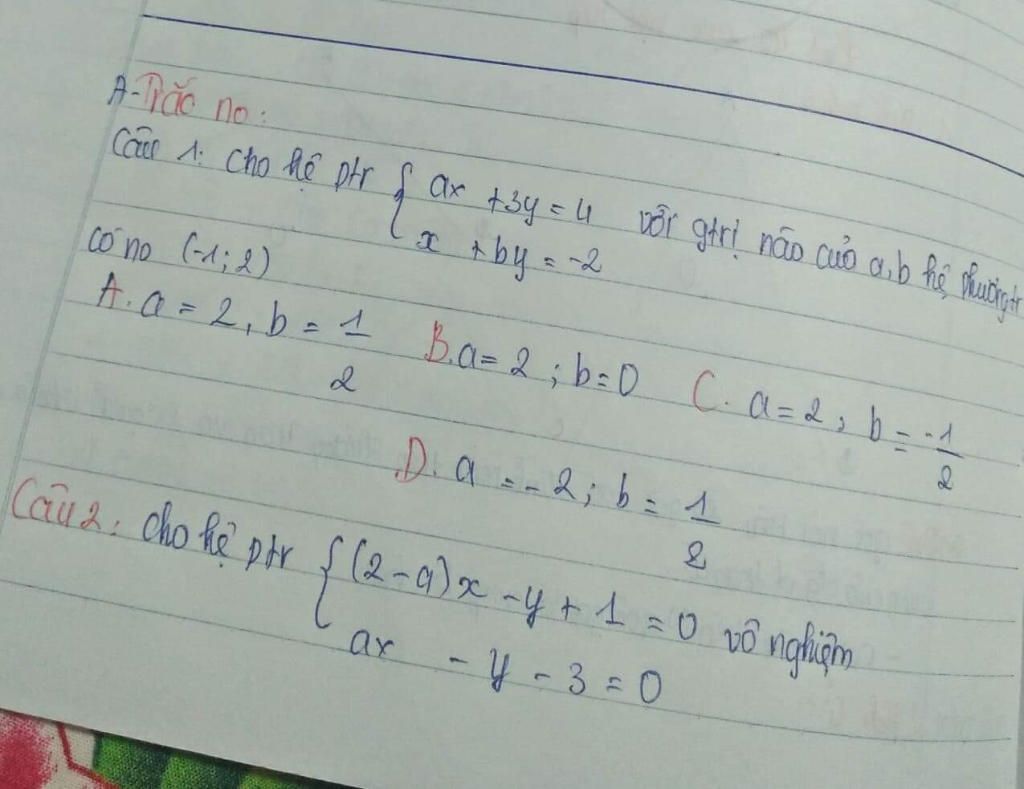 A-Trắc no:
Câu 1: cho hệ ptr { ax + 3y = 4 với gtrị nào của a,b hệ phươngtr
x + by = -2
có no (-1; 2)
A. a = 2, b = 1/2 B. a = 2 ; b = 0 C. a = 2 ; b = -1/2
D. a = -2 ; b = 1/2
Câu 2: cho hệ ptr { (2-a)x - y + 1 = 0 vô nghiệm
ax - y - 3 = 0